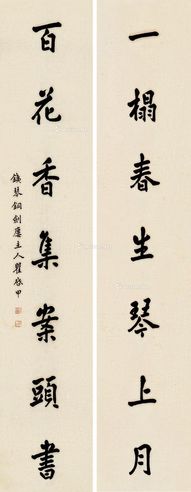 一榻春生琴上月
百花香集案頭書
鐵琴銅劍廔主人瞿啟甲